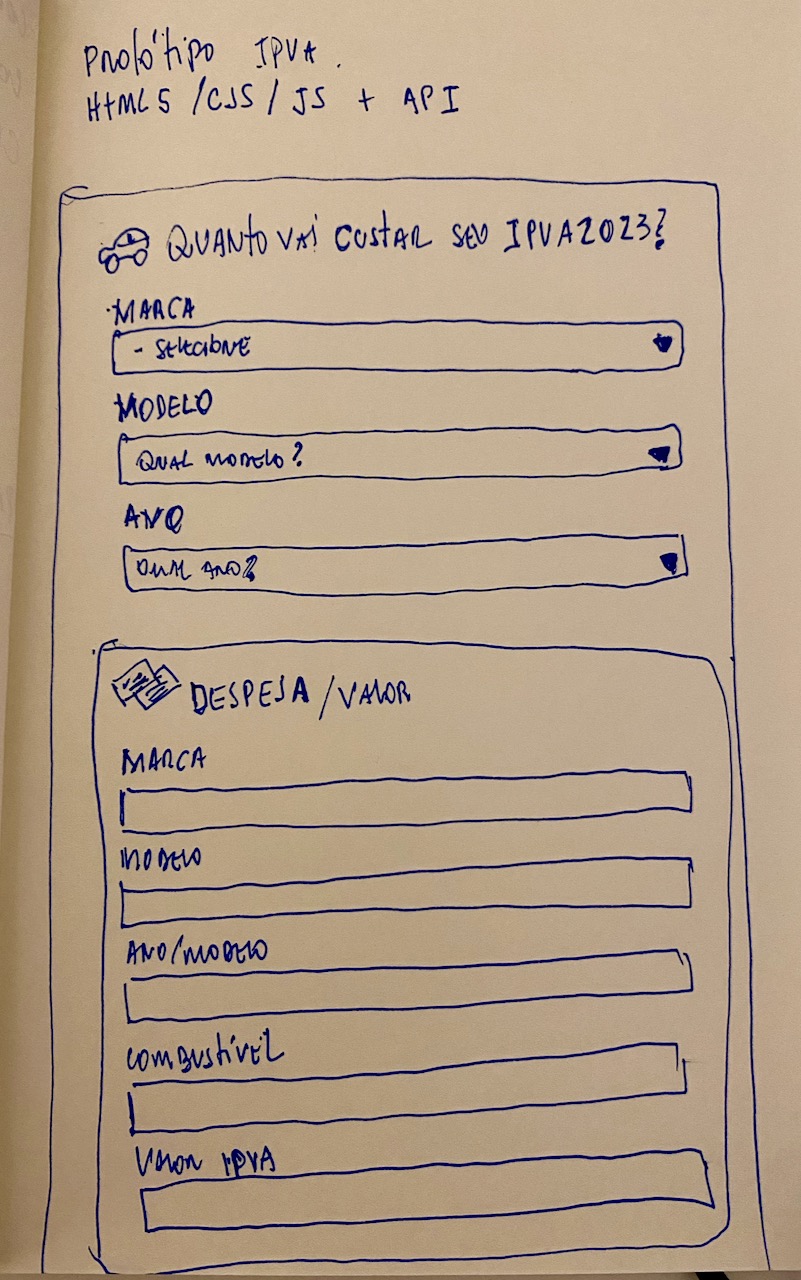 Protótipo IPVA.
HTML5 /CSS / JS + API
QUANTO VAI CUSTAR SEU IPVA 2023?
MARCA
- SELECIONE
MODELO
QUAL MODELO?
ANO
QUAL ANO?
DESPESA /VALOR
MARCA
MODELO
ANO/MODELO
COMBUSTÍVEL
VALOR IPVA